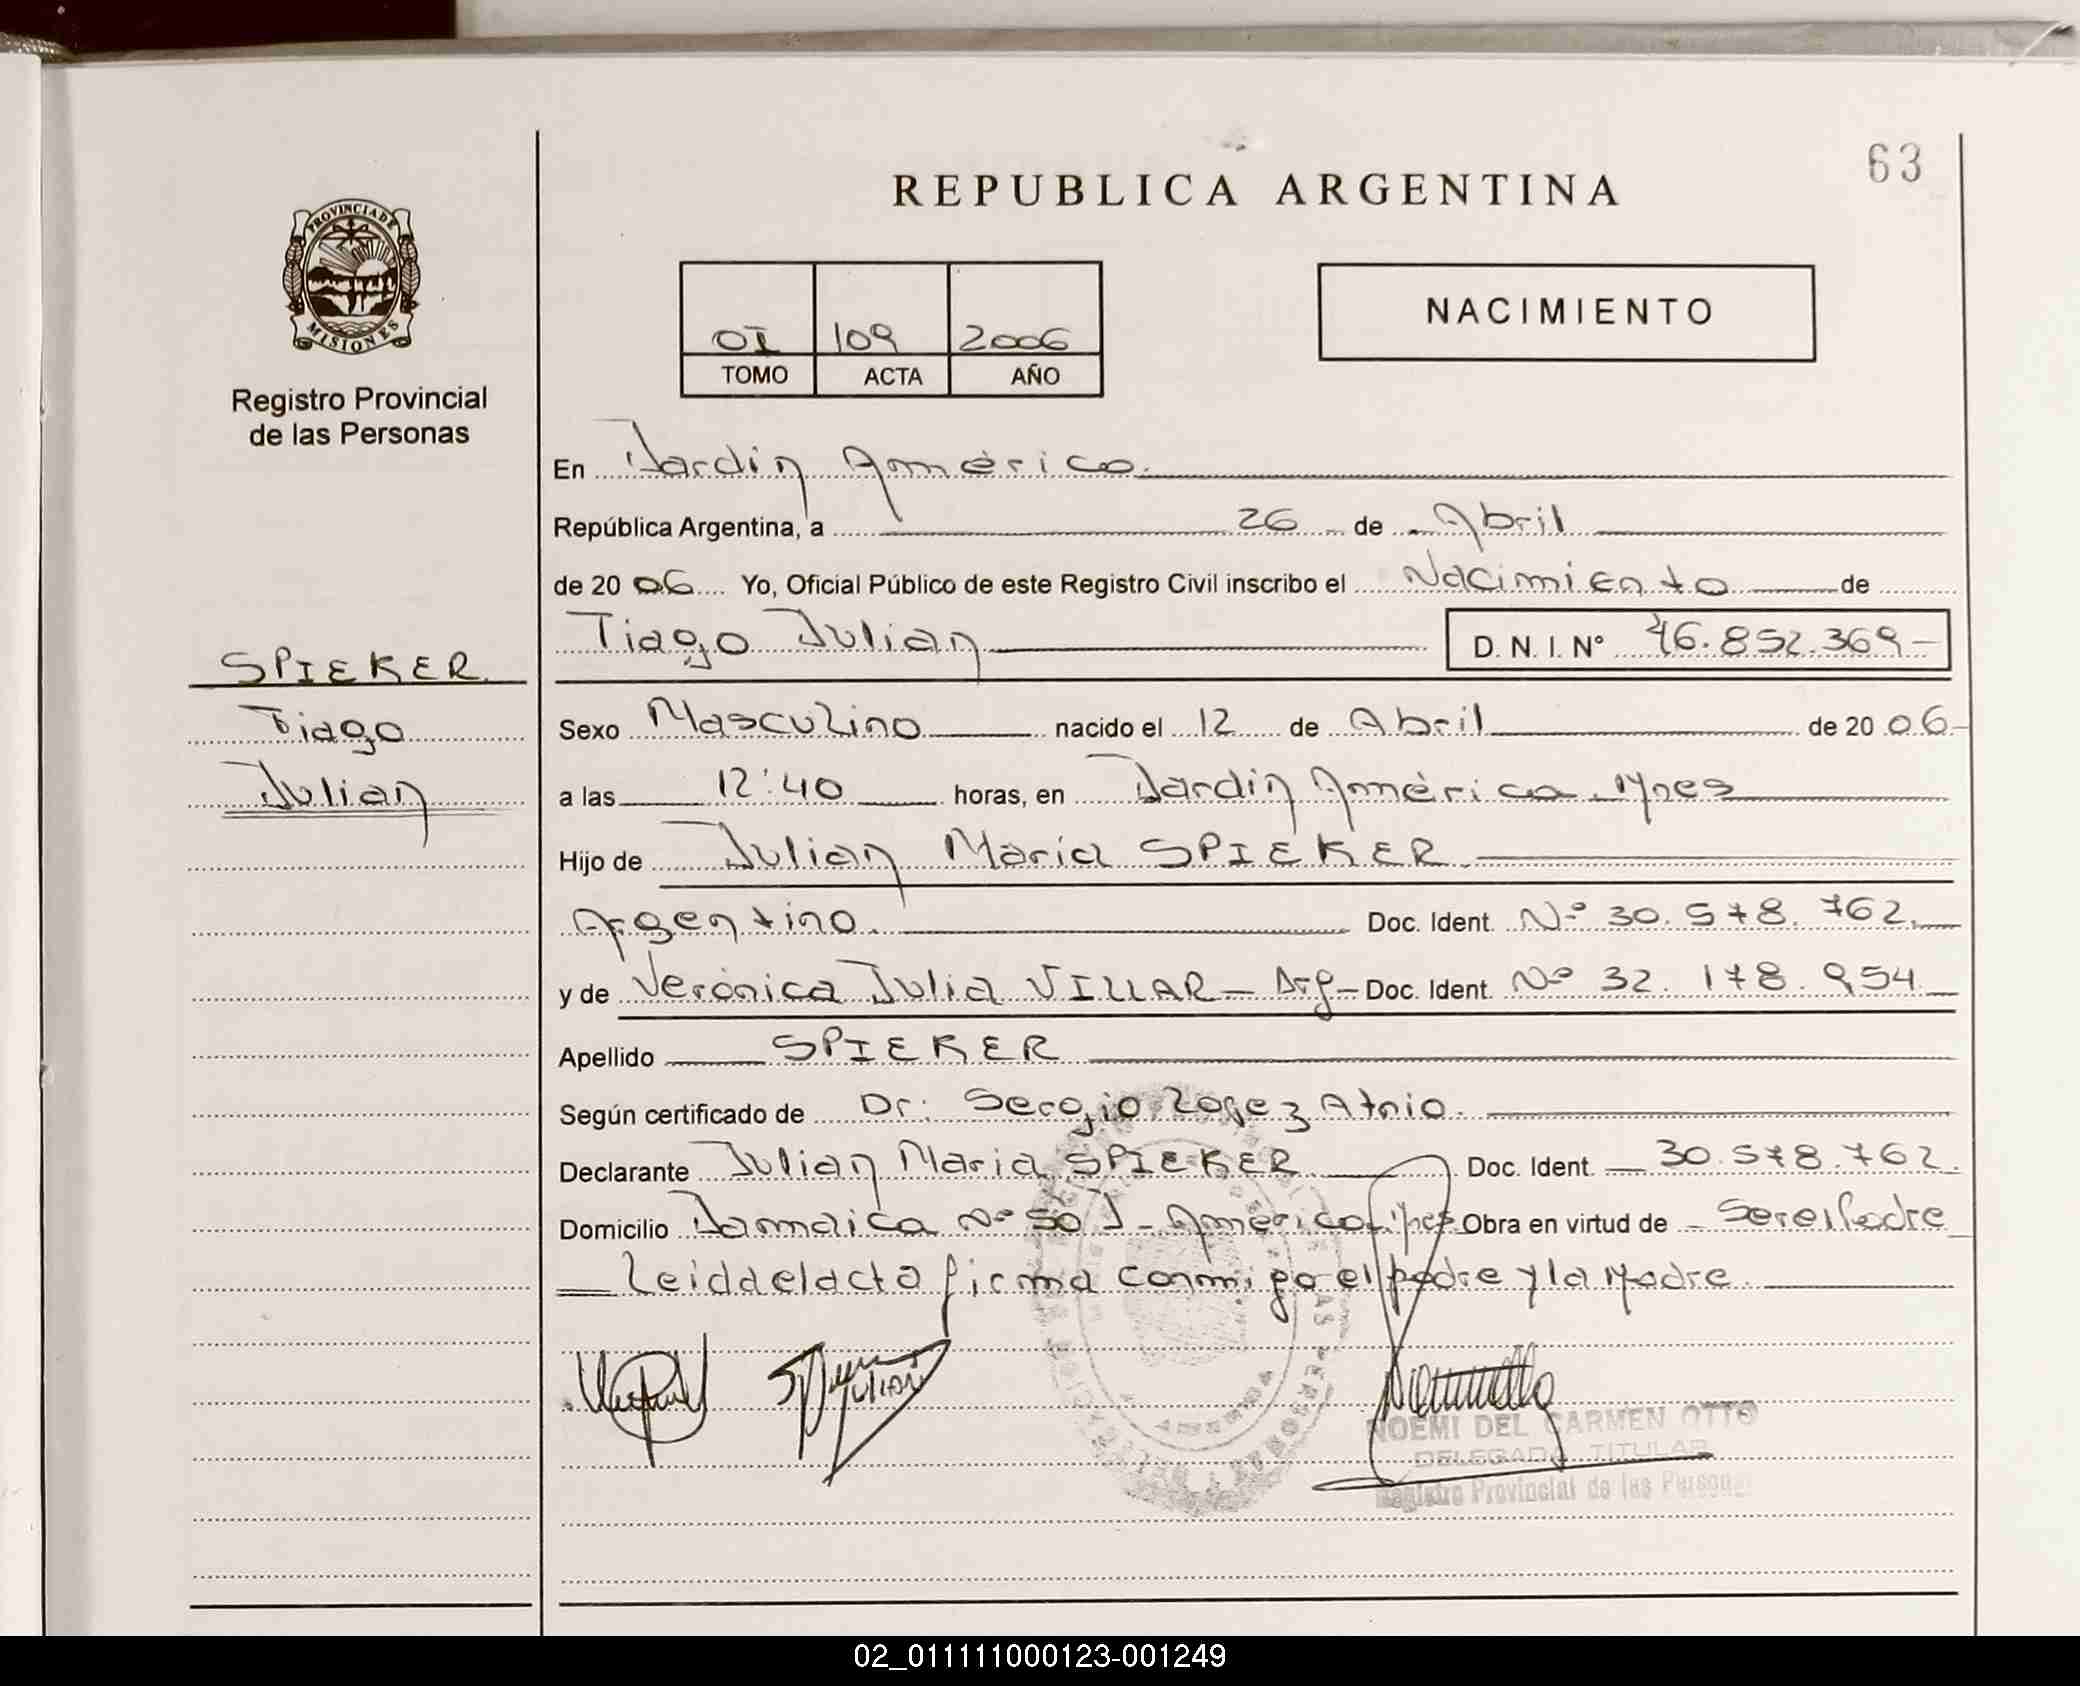 63
REPUBLICA ARGENTINA
PROVINCIA DE MISIONES
Registro Provincial
de las Personas
NACIMIENTO
OI 109 2006
TOMO ACTA AÑO
En Jardin América
República Argentina, a 26 de Abril
de 20 06 Yo, Oficial Público de este Registro Civil inscribo el Nacimiento de
Tiago Julian D. N. I. N° 46.852.369-
SPIEKER
Tiago
Julian
Sexo Masculino nacido el 12 de Abril de 20 06-
a las 12:40 horas, en Jardin América Mnes
Hijo de Julian Maria SPIEKER
Argentino. Doc. Ident. Nº 30.578.762.
y de Verónica Julia VILLAR - Arg - Doc. Ident. Nº 32.178.954
Apellido SPIEKER
Según certificado de Dr: Sergio Lopez Atnio.
Declarante Julian Maria SPIEKER Doc. Ident. 30.578.762.
Domicilio Jamaica Nº 50 J- América Mnes Obra en virtud de - Ser el Padre
Leida el acta firma conmigo el padre y la Madre.
Julian
NOEMI DEL CARMEN OTTO
DELEGADA TITULAR
Registro Provincial de las Personas
02_011111000123-001249